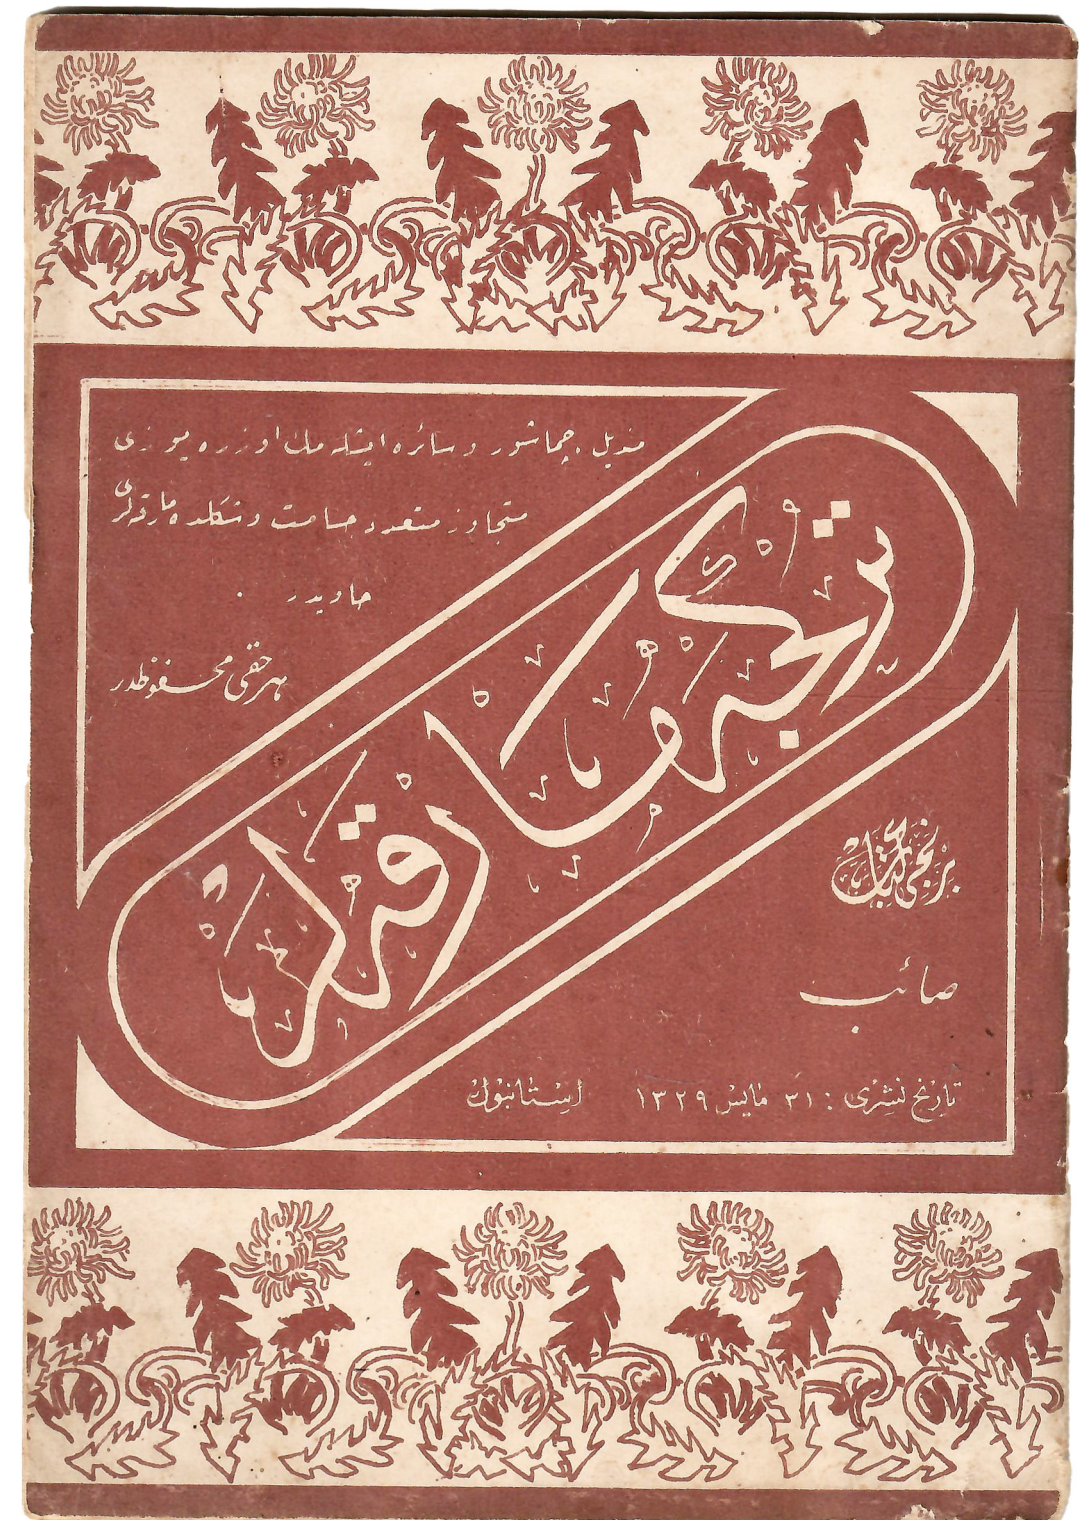 منديل، چماشور وسائره ايشله مك اوزره يوزى
متجاوز متعدد جسامت وشكلده مارقه لرى
حاويدر .
هر حقى محفوظدر
تركجه مارقه لر
برنجى كتاب
صائب
تاريخ نشرى : ٣١ مايس ١٣٢٩ استانبول